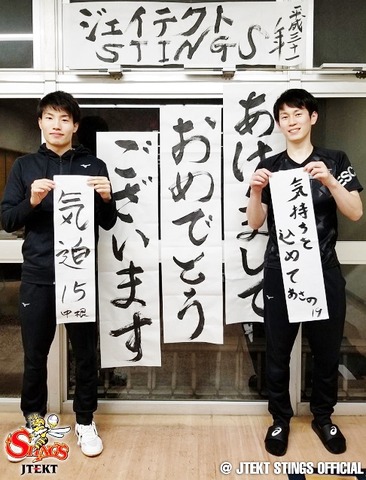 ジェイテクト
STINGS
平成三十一年
あけまして
おめでとう
ございます
気迫 15
中根
気持ちを
込めて
あさの
19
ESC
STINGS
JTEKT
@ JTEKT STINGS OFFICIAL